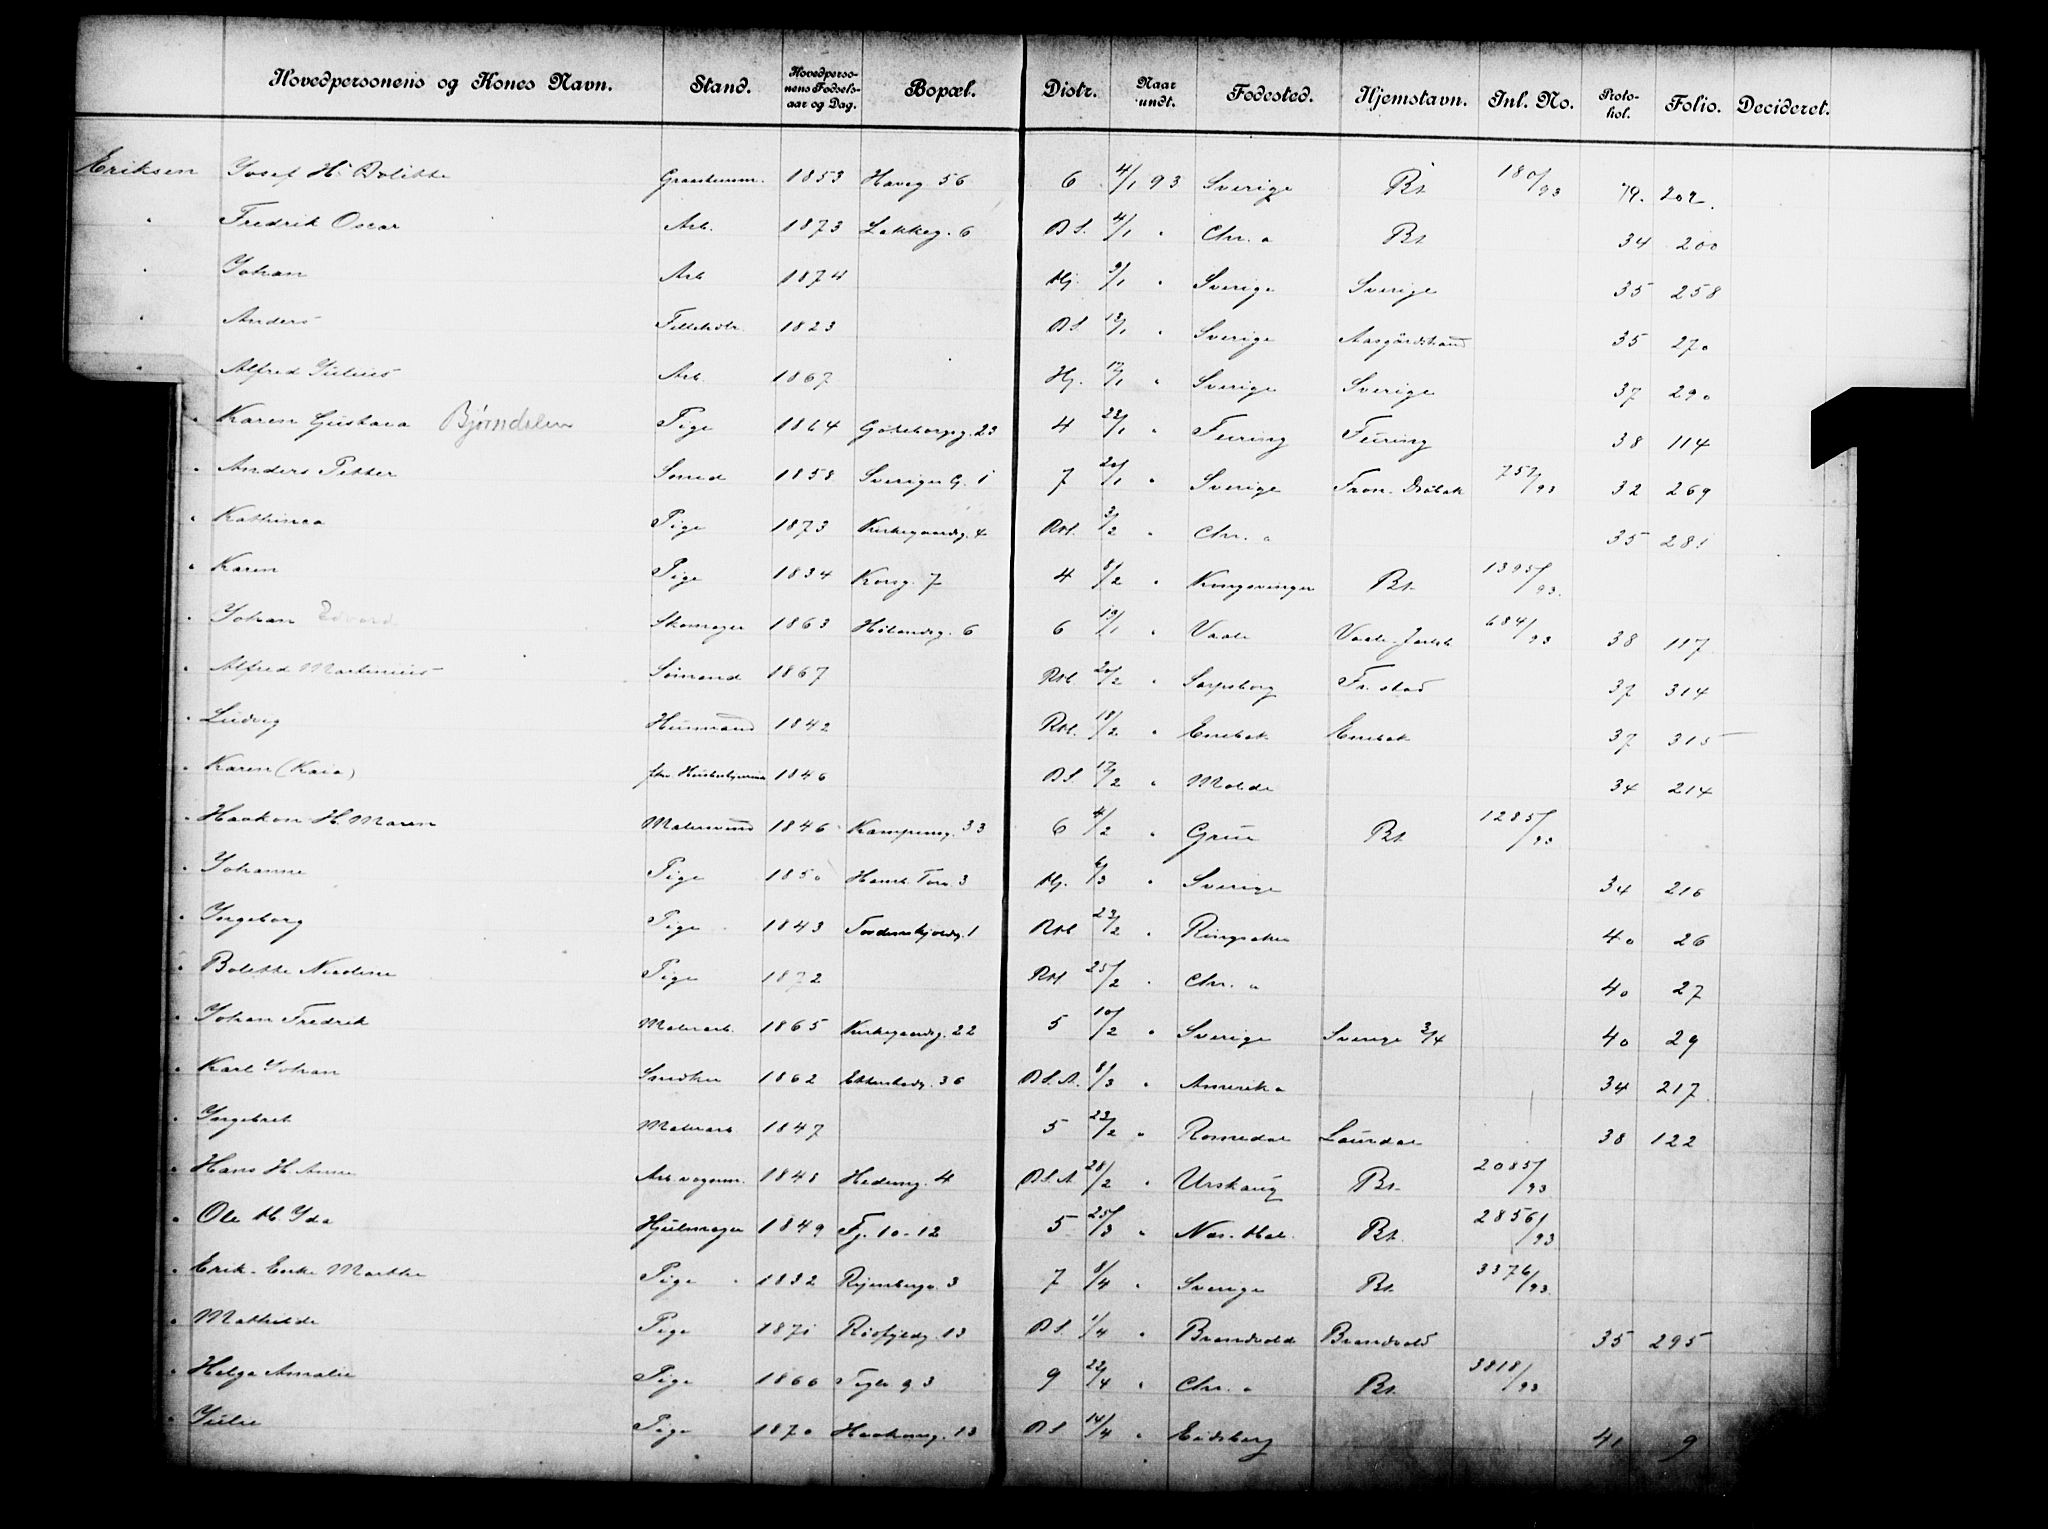 Hovedpersonens og Kones Navn. Stand. Hovedpersonens Fødselsaar og Dag. Bopæl. Distr. Naar undt. Fødested. Hjemstavn. Inl. No. Protokol. Folio. Decideret.
Eriksen Josef H. Bolette 1853 Haveg 56 6 4/1 93 Sverige Bt. 180/93 79. 202.
" Fredrik Oscar Arb. 1873 Lakkeg. 6 B S. 4/1 " Chr. a Bt 34 200
" Johan Arb 1874 Hj. 9/1 " Sverige Sverige 35 258
" Anders 1823 B S. 13/1 " Sverige Aasgårdstrand 35 270
" Alfred Julius Arb. 1867 Hj. 17/1 " Sverige Sverige 37 290
" Karen Gustava Bjørndalen Pige 1864 Göteborgg. 23 4 22/1 " Feiring Feiring 38 114
" Anders Petter Smed 1858. Sveriges G. 1 7 20/1 " Sverige Fron. Drøbak 757/93 32 269
" Kathinca Pige 1873 Kirkegaardsg. 4 Rtl. 3/2 " Chr. a 35 281
" Karen Pige 1834 Korsg. 7 4 8/2 " Kongsvinger Bt. 1395/93.
" Johan Edvard Skomager 1863 Hølandsg. 6 6 19/1 " Vaale Vaale Jarlsb 684/93 38 117
" Alfred Martinius Sømand 1867 Rtl. 20/2 " Sarpsborg Fr. stad 37 314
" Ludvig Husmand 1842 Rtl. 18/2 " Enebak Enebak 37 315
" Karen (Kaia) 1846 B S. 17/2 " Molde 34 214
" Haakon H. Maren Matersvend 1846 Kampensg. 33 6 4/2 " Grue Bt 1285/93
" Johanne Pige 1850 Hamb. Torv. 3 Hj. 6/3 " Sverige 34 216
" Ingeborg Pige 1843 Tordenskjoldsg. 1 Rtl 23/2 " Ringsaker 40 26
" Bolette Nicoline Pige 1872 Rtl 25/2 " Chr. a 40 27
" Johan Fredrik Malerarb. 1865 Kirkegaardsg. 22 5 10/2 " Sverige Sverige 3/4 40 29
" Karl Johan Snedker 1862 Ekkerbedg. 36 B. S. A. 8/3 " Amerika 34 217
" Ingebret Malerarb 1847 5 23/2 " Romedal Laurdal 38 122
" Hans H. Anne Arb. vognm. 1848 Hedemg. 4 B. S. A 28/2 " Urskoug Bt. 2085/93
" Ole H. Ida Hjulmager 1849 Fj. 10-12 5 25/3 " Nes. Hal. Bt. 2856/93
" Erik. Enke Marthe Pige 1832 Rijenbergv. 3 7 8/4 " Sverige Bt. 3376/93.
" Mathilde Pige 1871 Risfjeldg. 13 B S. 1/4 " Brandvold Brandvold 35 295
" Helga Amalie Pige 1866 Tegls g. 3 9 22/4 " Chr. a Bt. 3818/93
" Julie Pige 1870 Haakonsg. 13 B S 14/4 " Eidsberg 41 9